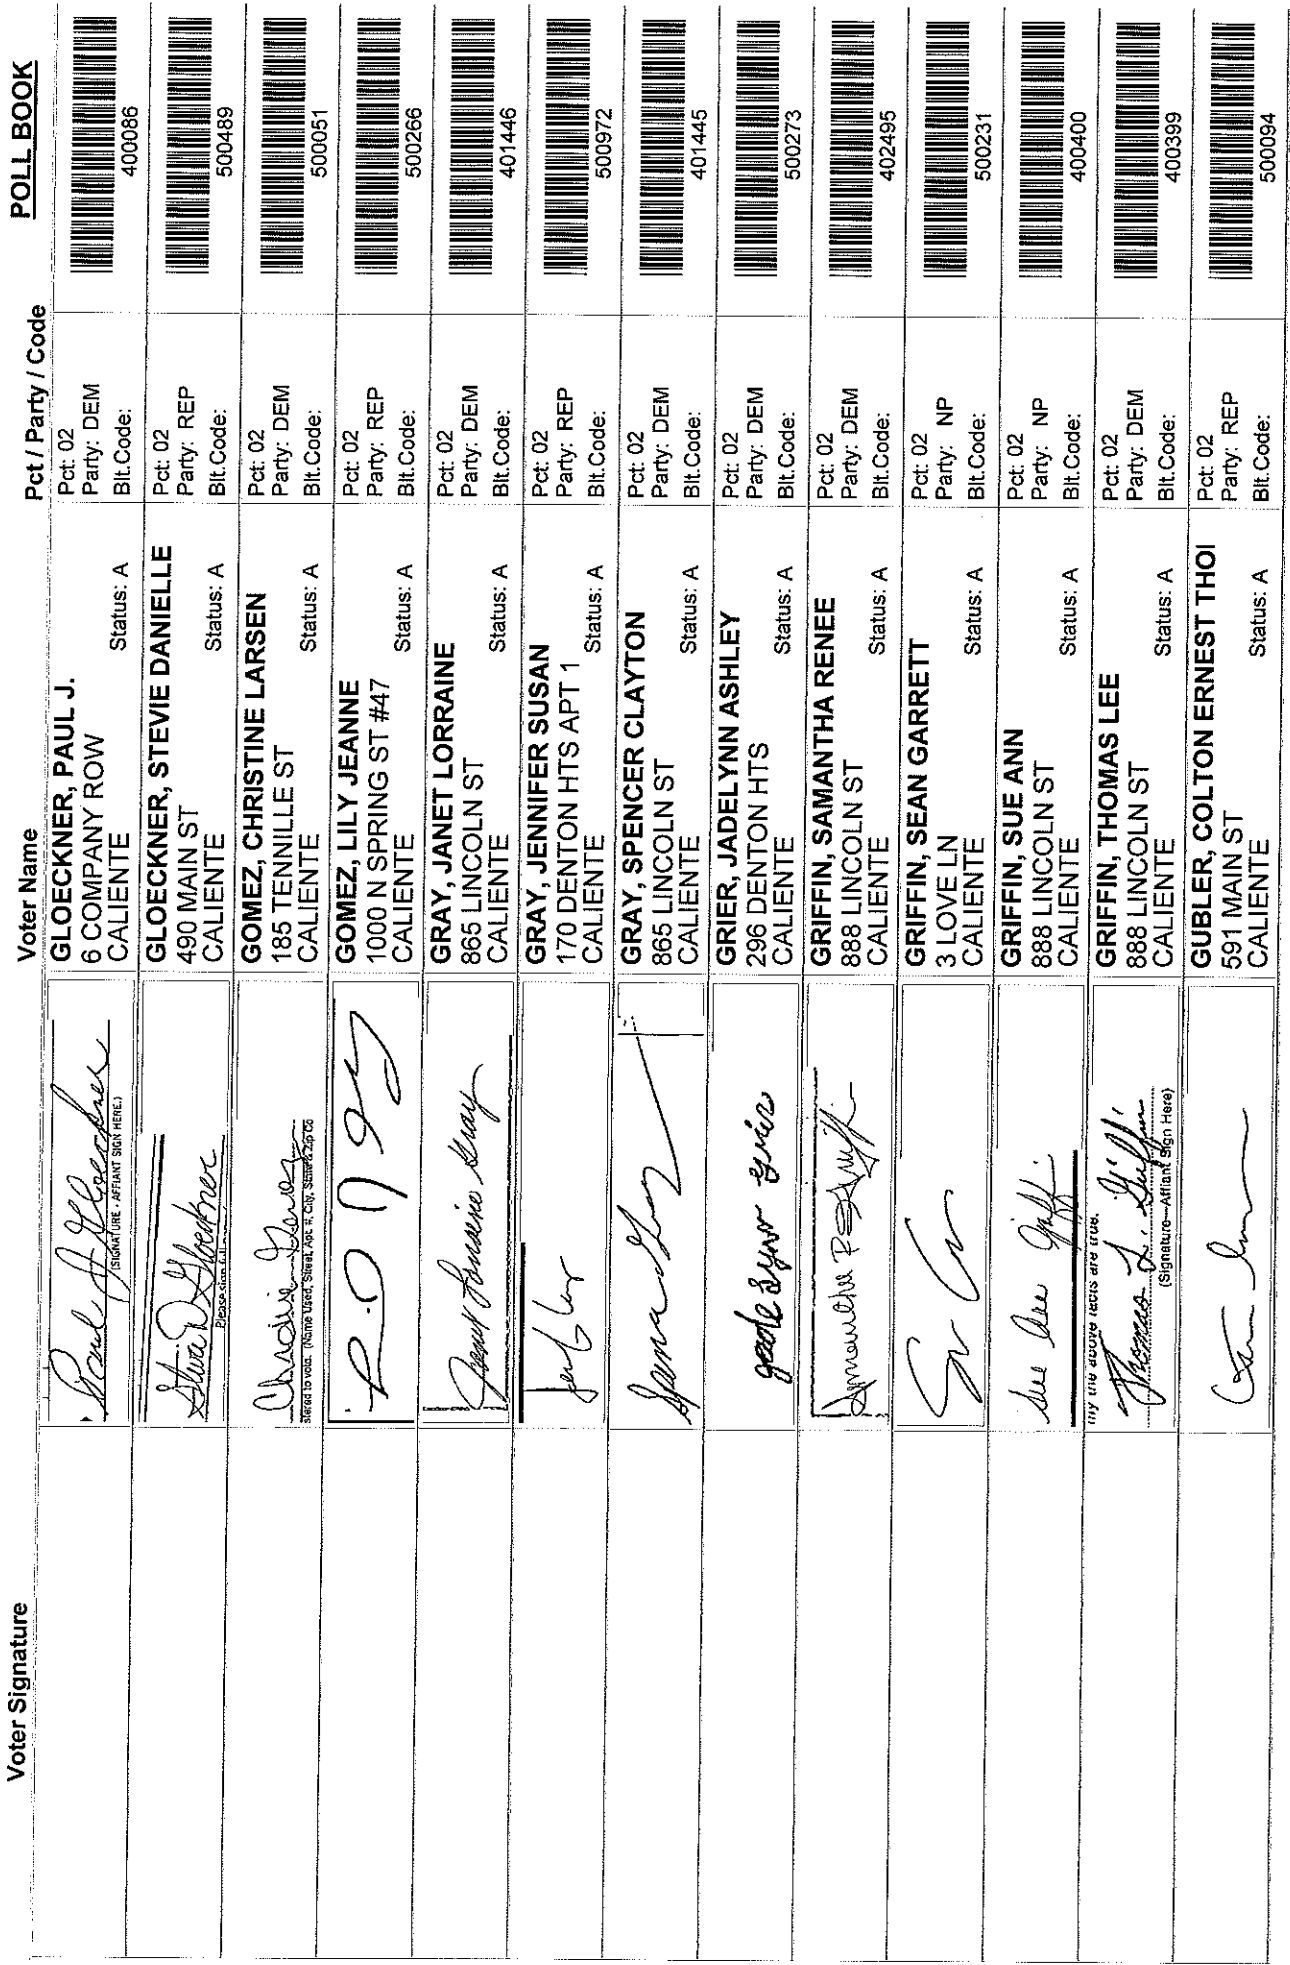 POLL BOOK
Voter Signature
Voter Name
Pct / Party / Code
Paul J Gloeckner
(SIGNATURE - AFFIANT SIGN HERE.)
GLOECKNER, PAUL J.
6 COMPANY ROW
CALIENTE
Status: A
Pct: 02
Party: DEM
Blt.Code:
400086
Stevie D Gloeckner
GLOECKNER, STEVIE DANIELLE
490 MAIN ST
CALIENTE
Status: A
Pct: 02
Party: REP
Blt.Code:
500489
stered to vote. (Name Used, Street, Apt. #, City, State & Zip Co
GOMEZ, CHRISTINE LARSEN
185 TENNILLE ST
CALIENTE
Status: A
Pct: 02
Party: DEM
Blt.Code:
500051
GOMEZ, LILY JEANNE
1000 N SPRING ST #47
CALIENTE
Status: A
Pct: 02
Party: REP
Blt.Code:
500266
Janet Lorraine Gray
GRAY, JANET LORRAINE
865 LINCOLN ST
CALIENTE
Status: A
Pct: 02
Party: DEM
Blt.Code:
401446
GRAY, JENNIFER SUSAN
170 DENTON HTS APT 1
CALIENTE
Status: A
Pct: 02
Party: REP
Blt.Code:
500972
GRAY, SPENCER CLAYTON
865 LINCOLN ST
CALIENTE
Status: A
Pct: 02
Party: DEM
Blt.Code:
401445
GRIER, JADELYNN ASHLEY
296 DENTON HTS
CALIENTE
Status: A
Pct: 02
Party: DEM
Blt.Code:
500273
GRIFFIN, SAMANTHA RENEE
888 LINCOLN ST
CALIENTE
Status: A
Pct: 02
Party: DEM
Blt.Code:
402495
GRIFFIN, SEAN GARRETT
3 LOVE LN
CALIENTE
Status: A
Pct: 02
Party: NP
Blt.Code:
500231
GRIFFIN, SUE ANN
888 LINCOLN ST
CALIENTE
Status: A
Pct: 02
Party: NP
Blt.Code:
400400
the above facts are true.
Thomas L. Griffin
(Signature—Affiant Sign Here)
GRIFFIN, THOMAS LEE
888 LINCOLN ST
CALIENTE
Status: A
Pct: 02
Party: DEM
Blt.Code:
400399
GUBLER, COLTON ERNEST THOI
591 MAIN ST
CALIENTE
Status: A
Pct: 02
Party: REP
Blt.Code:
500094